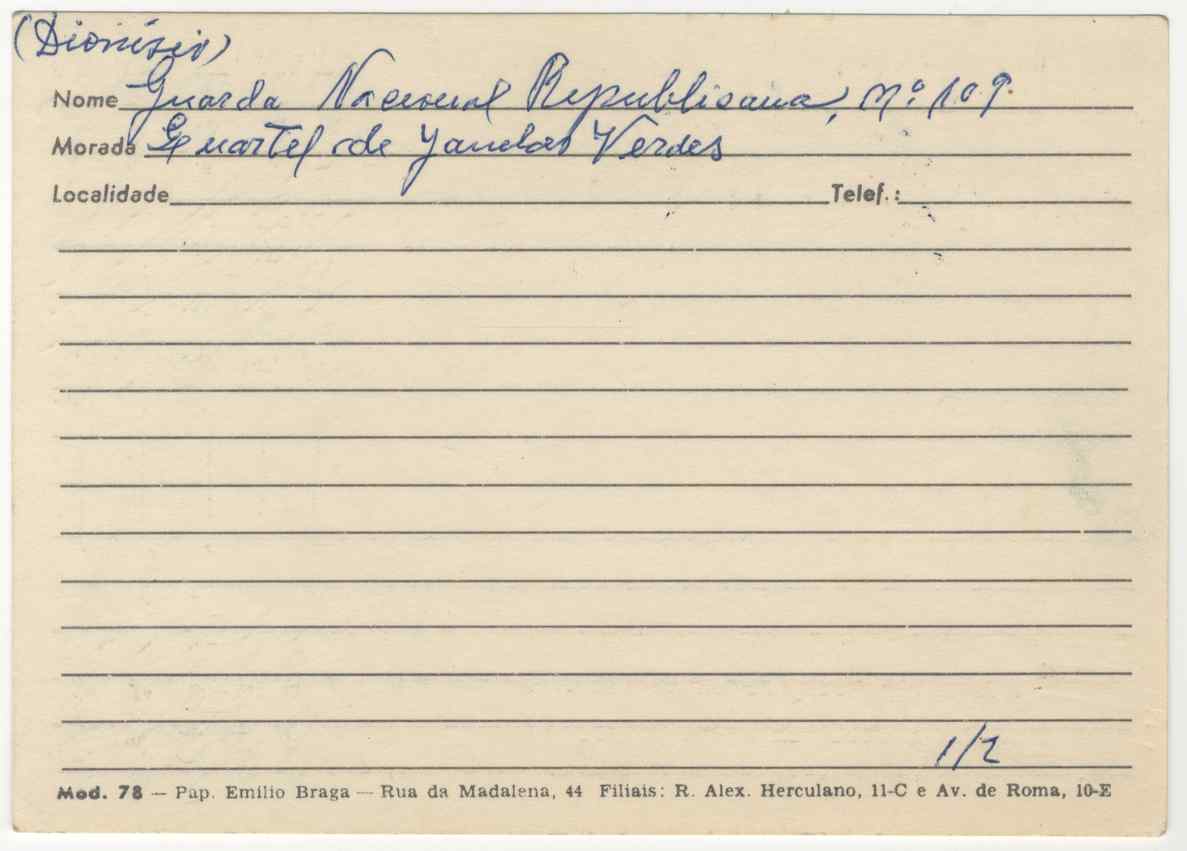 (Dionísio)
Nome Guarda Nacional Republicana, nº 109.
Morada Quartel de Janelas Verdes
Localidade Telef.:
1/2
Mod. 78 — Pap. Emílio Braga — Rua da Madalena, 44 Filiais: R. Alex. Herculano, 11-C e Av. de Roma, 10-E